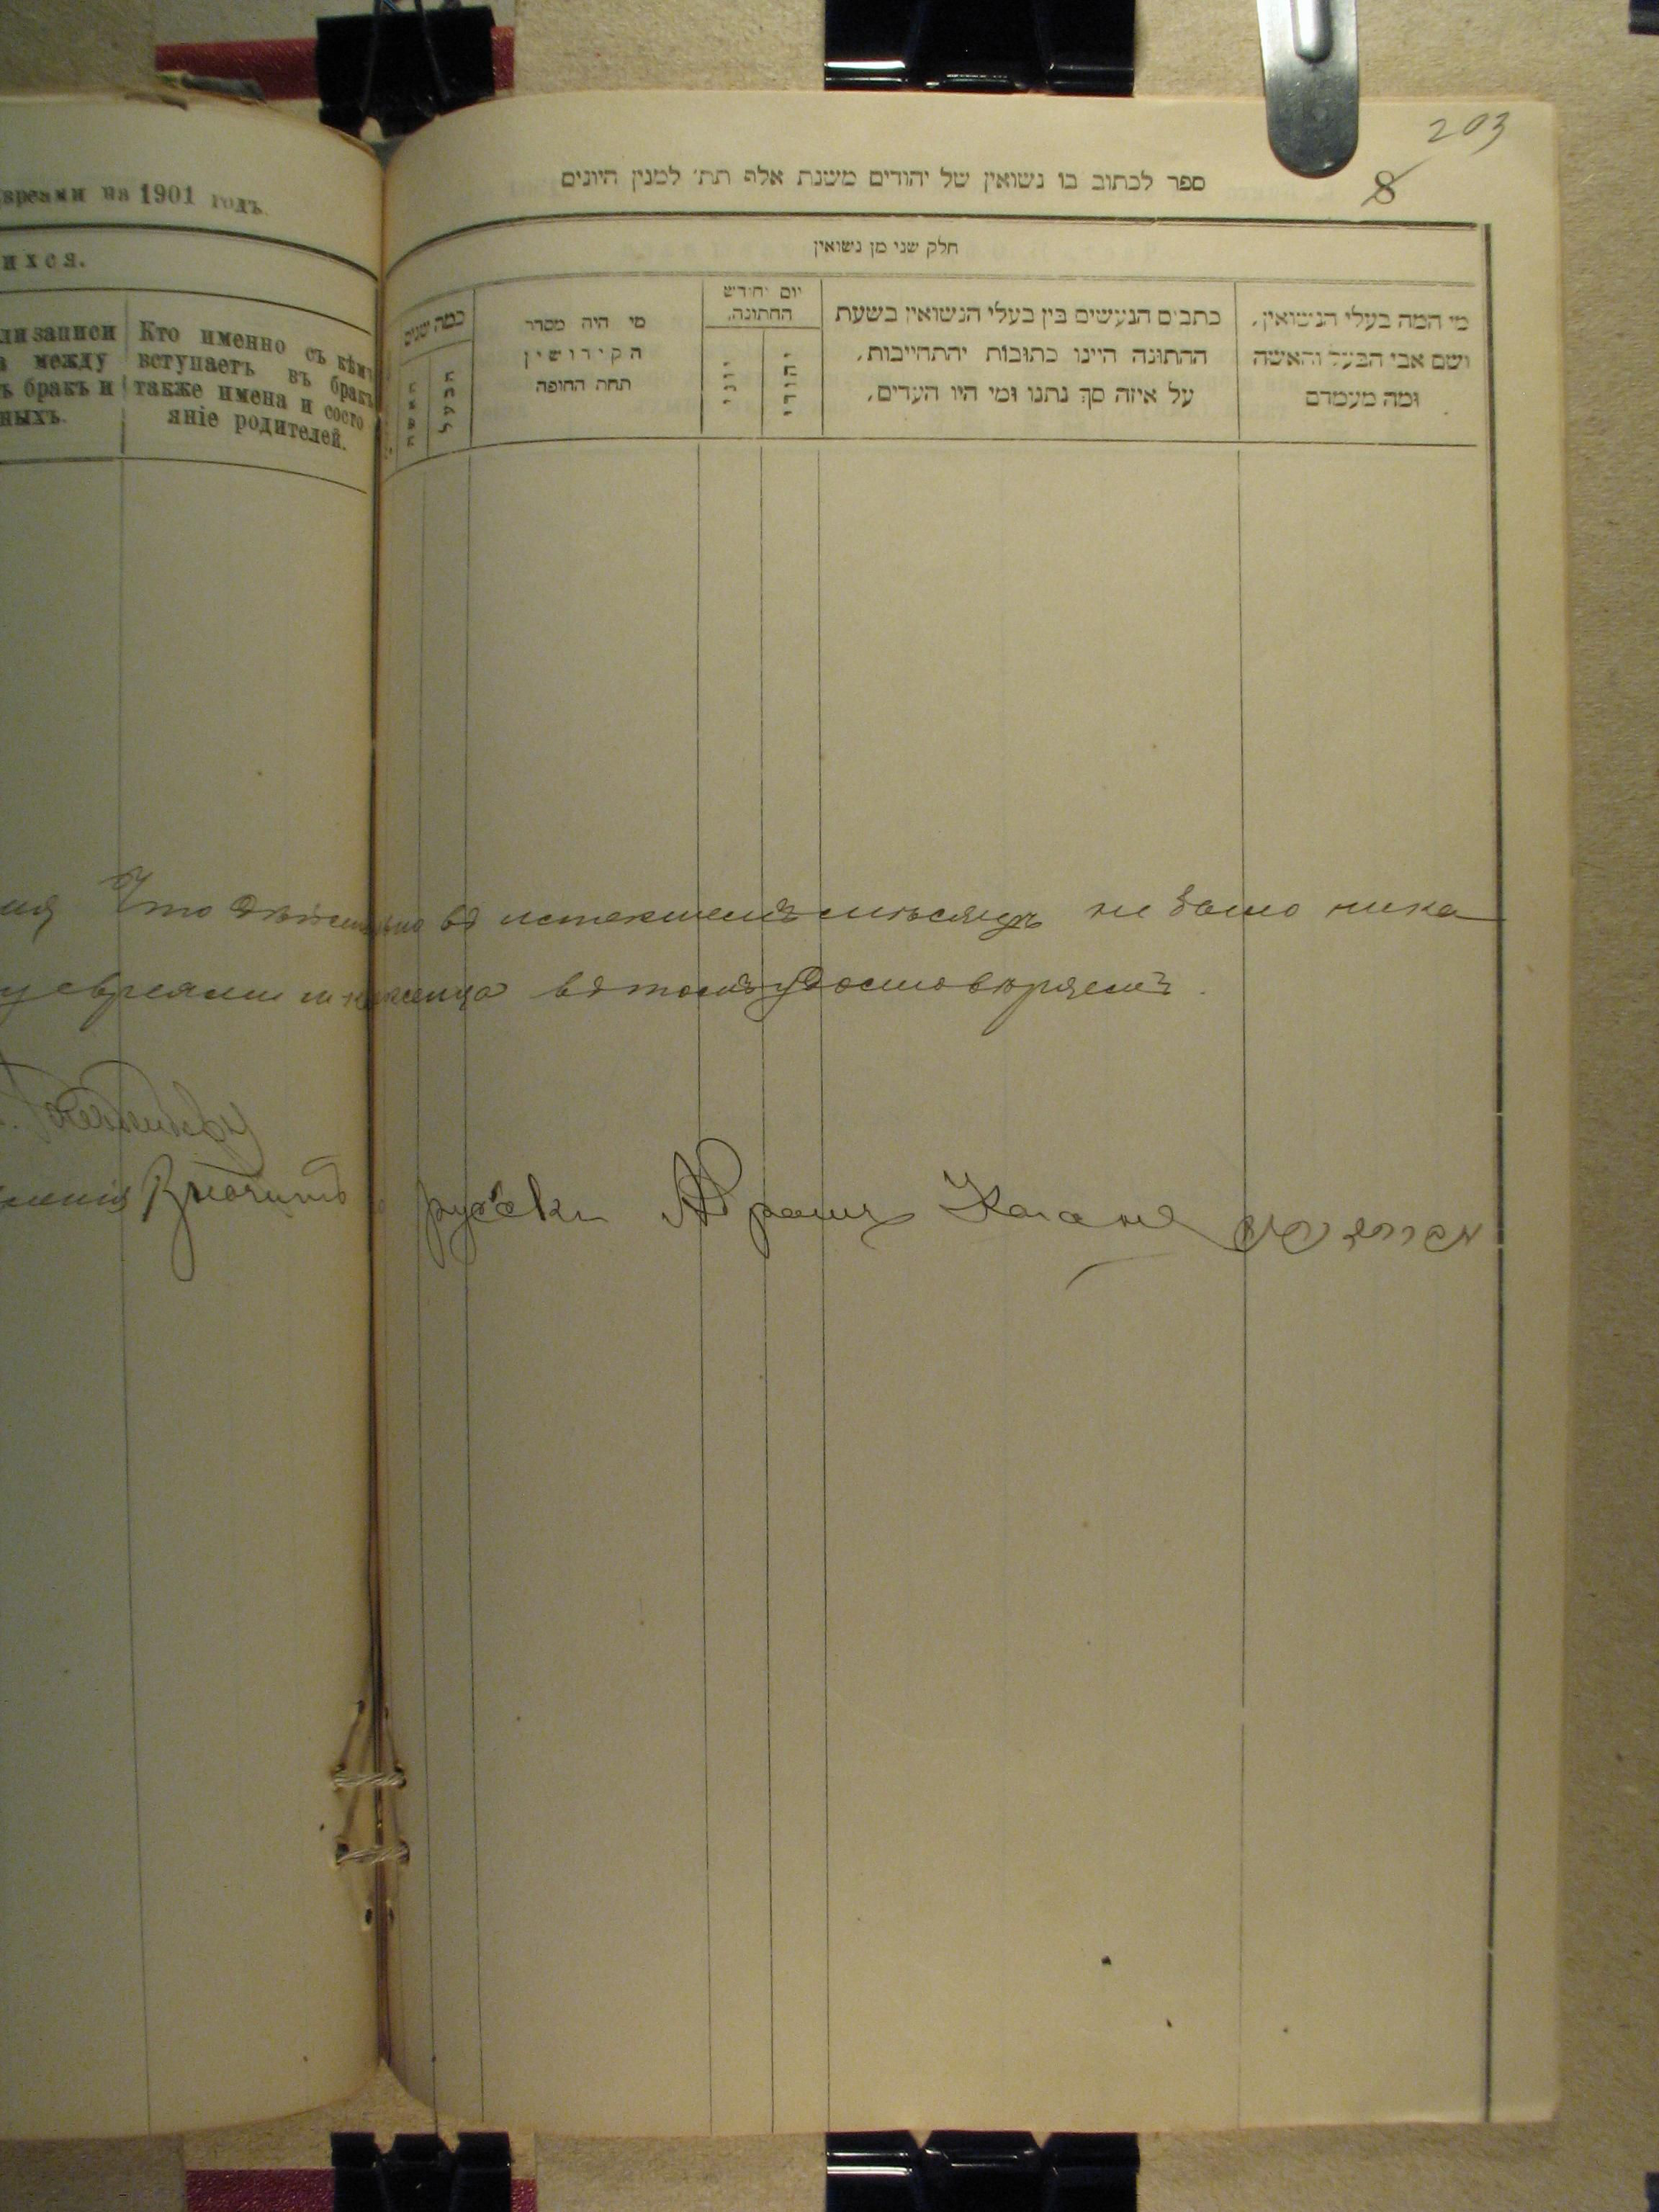 203
8
ספר לכתוב בו נשואין של יהודים משנת אלף תת׳ למנין היונים
חלק שני מן נשואין
מי המה בעלי הנשואין,
ושם אבי הבעל והאשה
ומה מעמדם
כתבים הנעשים בין בעלי הנשואין בשעת
החתונה היינו כתובות והתחייבות,
על איזה סך נתנו ומי היו העדים,
יום וחודש
החתונה,
יהודי
יוני
מי היה מסדר
הקידושין
תחת החופה
כמה שנים
הבעל
האשה
вреями на 1901 годъ.
ихся.
ли записи
между
ъ бракъ и
ныхъ.
Кто именно съ кѣмъ
вступаетъ въ бракъ
также имена и состо
яніе родителей.
Что дѣйствительно въ истекшемъ мѣсяцѣ не было ника
евреями въ томъ удостовѣряемъ.
русски Абрамъ Каганъ